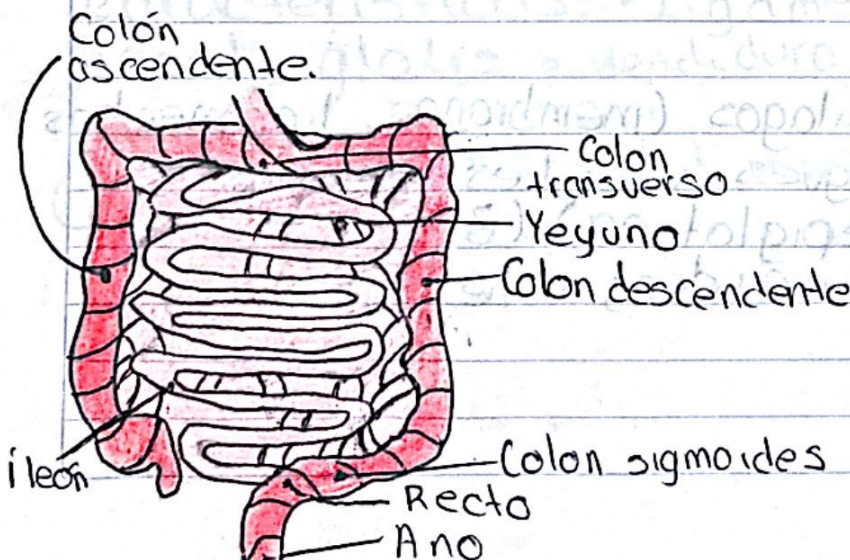 Colón
ascendente.
Colon
transverso
Yeyuno
Colon descendente
íleon
Colon sigmoides
Recto
Ano